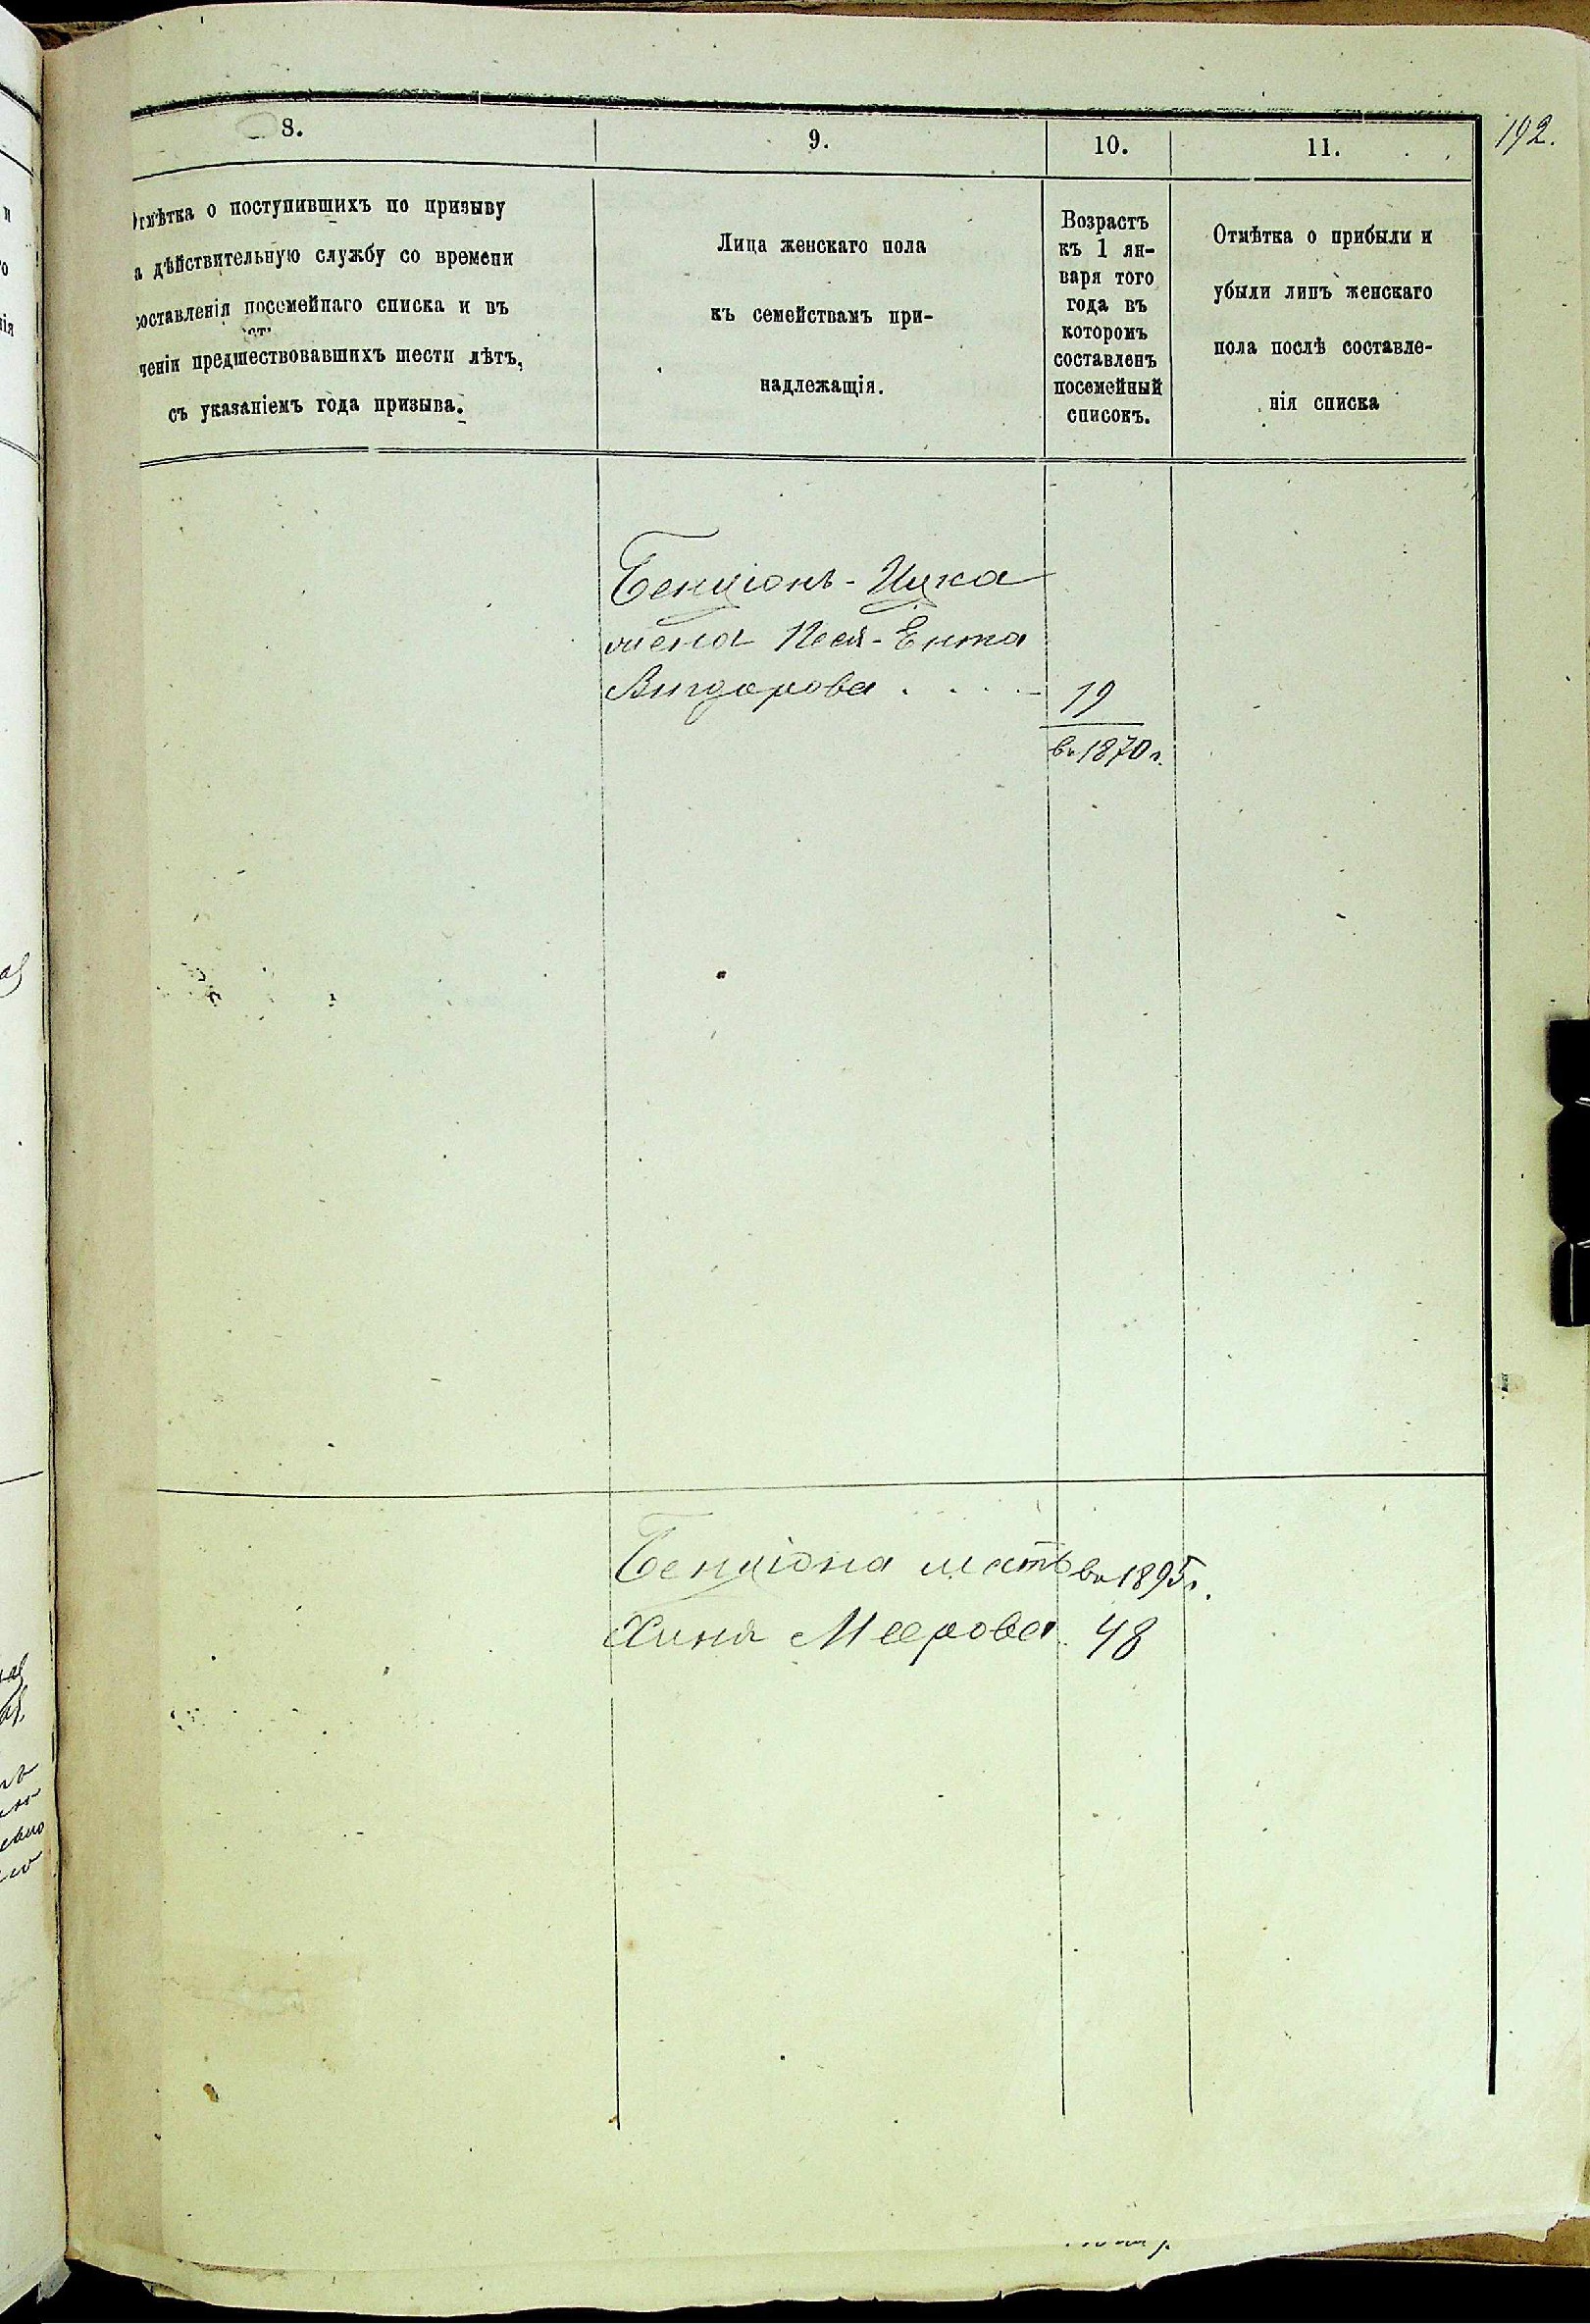 192.
8.
9.
10.
11.
Отмѣтка о поступившихъ по призыву
а дѣйствительную службу со времени
составленія посемейнаго списка и въ
ченіи предшествовавшихъ шести лѣтъ,
съ указаніемъ года призыва.
Лица женскаго пола
къ семействамъ при-
надлежащія.
Возрастъ
къ 1 ян-
варя того
года въ
которомъ
составленъ
посемейный
списокъ.
Отмѣтка о прибыли и
убыли лицъ женскаго
пола послѣ составле-
нія списка
Бенціонъ-Ицка
жена Песя-Ента
Вигдорова . . . . 19
въ 1870 г.
Бенціона мать въ 1895 г.
Хиня Меерова 48